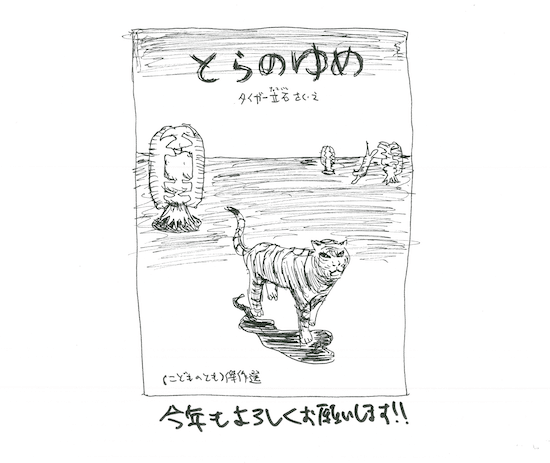 とらのゆめ
タイガー立石 さく・え
(こどものとも)傑作選
今年もよろしくお願いします!!